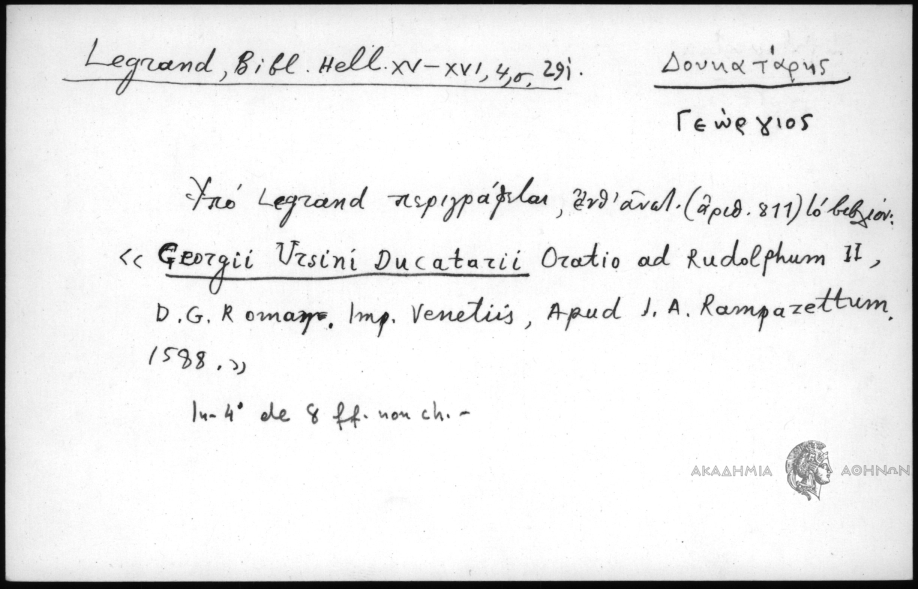 Legrand, Bibl. Hell. XV-XVI, 4, σ. 291.
Δουκατάρης
Γεώργιος
Ὑπό Legrand περιγράφεται, ἔνθ' ἀνωτ. (ἀριθ. 811) τό βιβλίον:
« Georgii Ursini Ducatarii Oratio ad Rudolphum II,
D. G. Roman. Imp. Venetiis, Apud J. A. Rampazettum.
1588. »
In-4° de 8 ff. non ch. -
ΑΚΑΔΗΜΙΑ ΑΘΗΝΩΝ